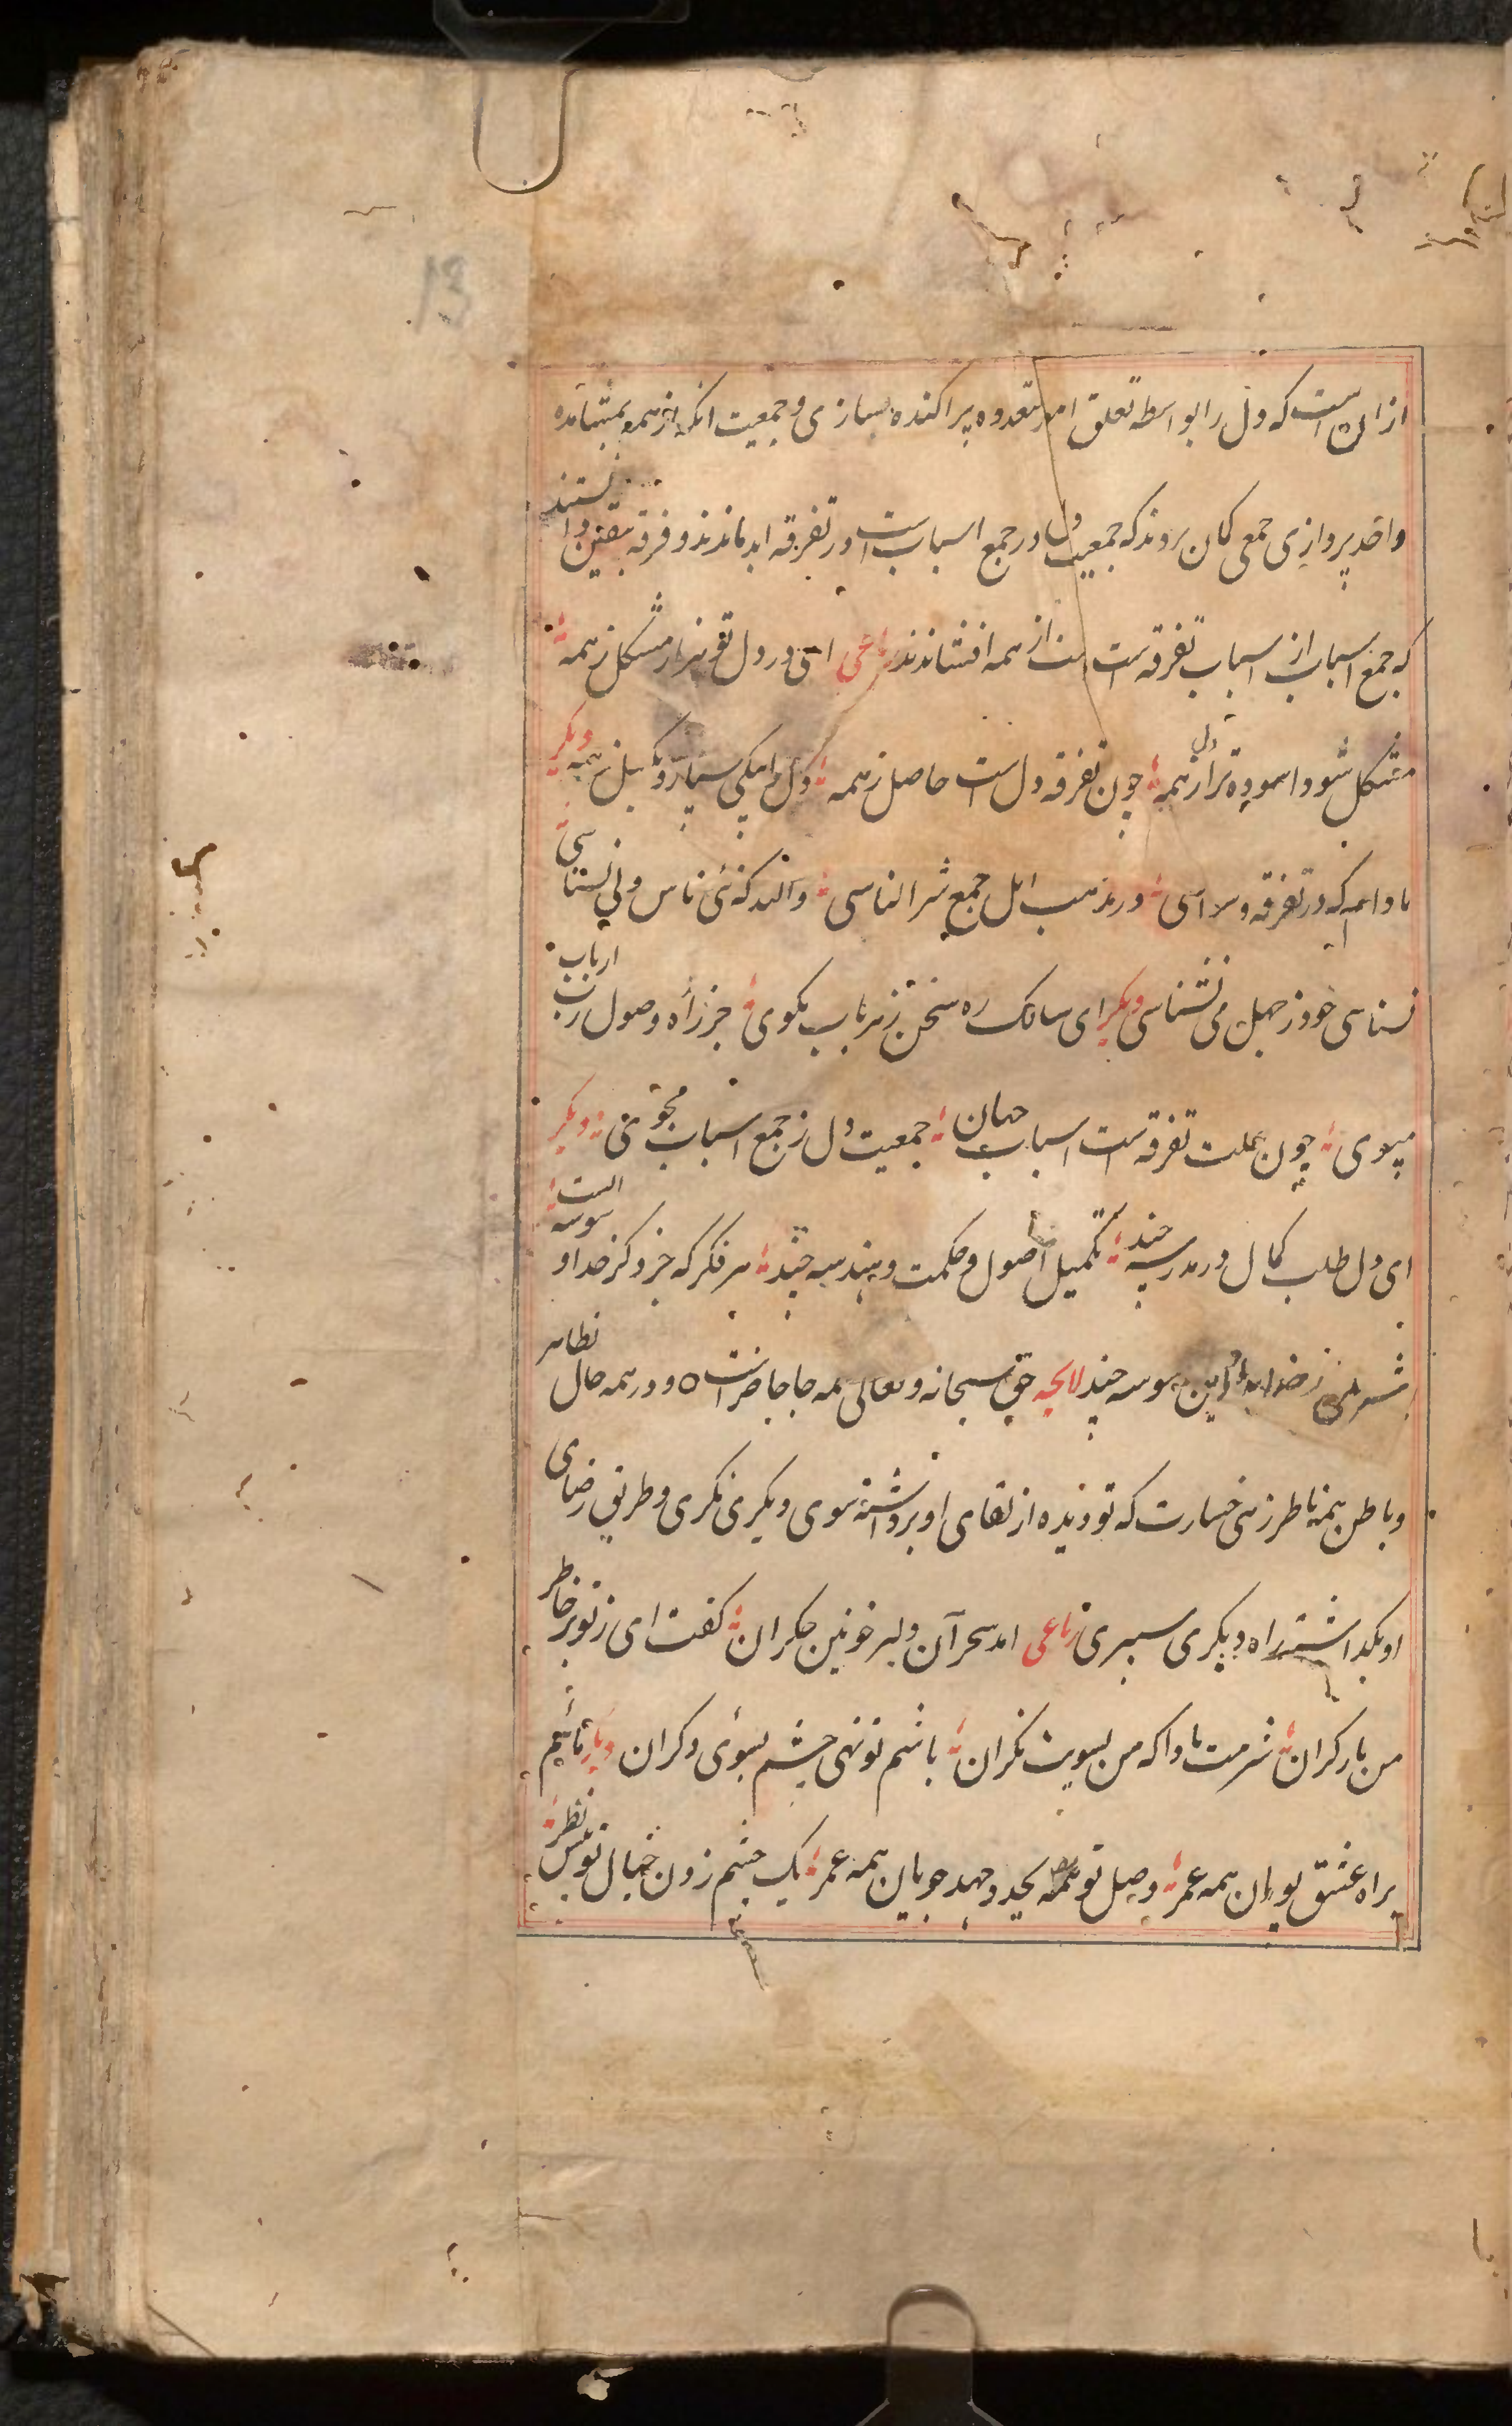 13
از ان است که دل را بواسطه تعلق امور متعدده پراکنده سازی و جمعیت انکه از همه بمشاهده
واحد پردازی جمعی کمان بردند که جمعیت دل در جمع اسباب است در تفرقه ابد ماندند و فرقه بیقین دانستند
که جمع اسباب از اسباب تفرقه است دست از همه افشاندند رباعی ای در دل تو هزار مشکل ز همه
مشکل شود اسوده ترا دل ز همه چون تفرقه دل است حاصل ز همه دل را بیکی سپار و بکسل ز همه دیکر
مادام که در تفرقه و وسواسی در مذهب اهل جمع شر الناسی والله که نئی ناس ولی نسناسی
نسناسی خود ز جهل می نشناسی دیکر ای سالک ره سخن ز هر باب مکوی جز راه وصول رب ارباب
مپوی چون علت تفرقه است اسباب جهان جمعیت دل ز جمع اسباب مجوئی دیکر
ای دل طلب کمال در مدرسه چند تکمیل اصول و حکمت و هندسه چند هر فکر که جز ذکر خدا وسوسه است
شرمی ز خدا بدار این وسوسه چند لایحه حق سبحانه و تعالی همه جا حاضر است و در همه حال بظاهر
و باطن همه ناظر زهی خسارت که تو دیده از لقای او برداشته سوی دیکری نکری و طریق رضای
او بکذاشته راه دیکری سپری رباعی امد سحر آن دلبر خونین جکران کفت ای ز تو بر خاطر
من بار کران شرمت بادا که من بسویت نکران باشم تو نهی چشم بسوئی دکران دیکر مائیم
براه عشق پویان همه عمر وصل تو بجد و جهد جویان همه عمر یک چشم زدن خیال تو پیش نظر